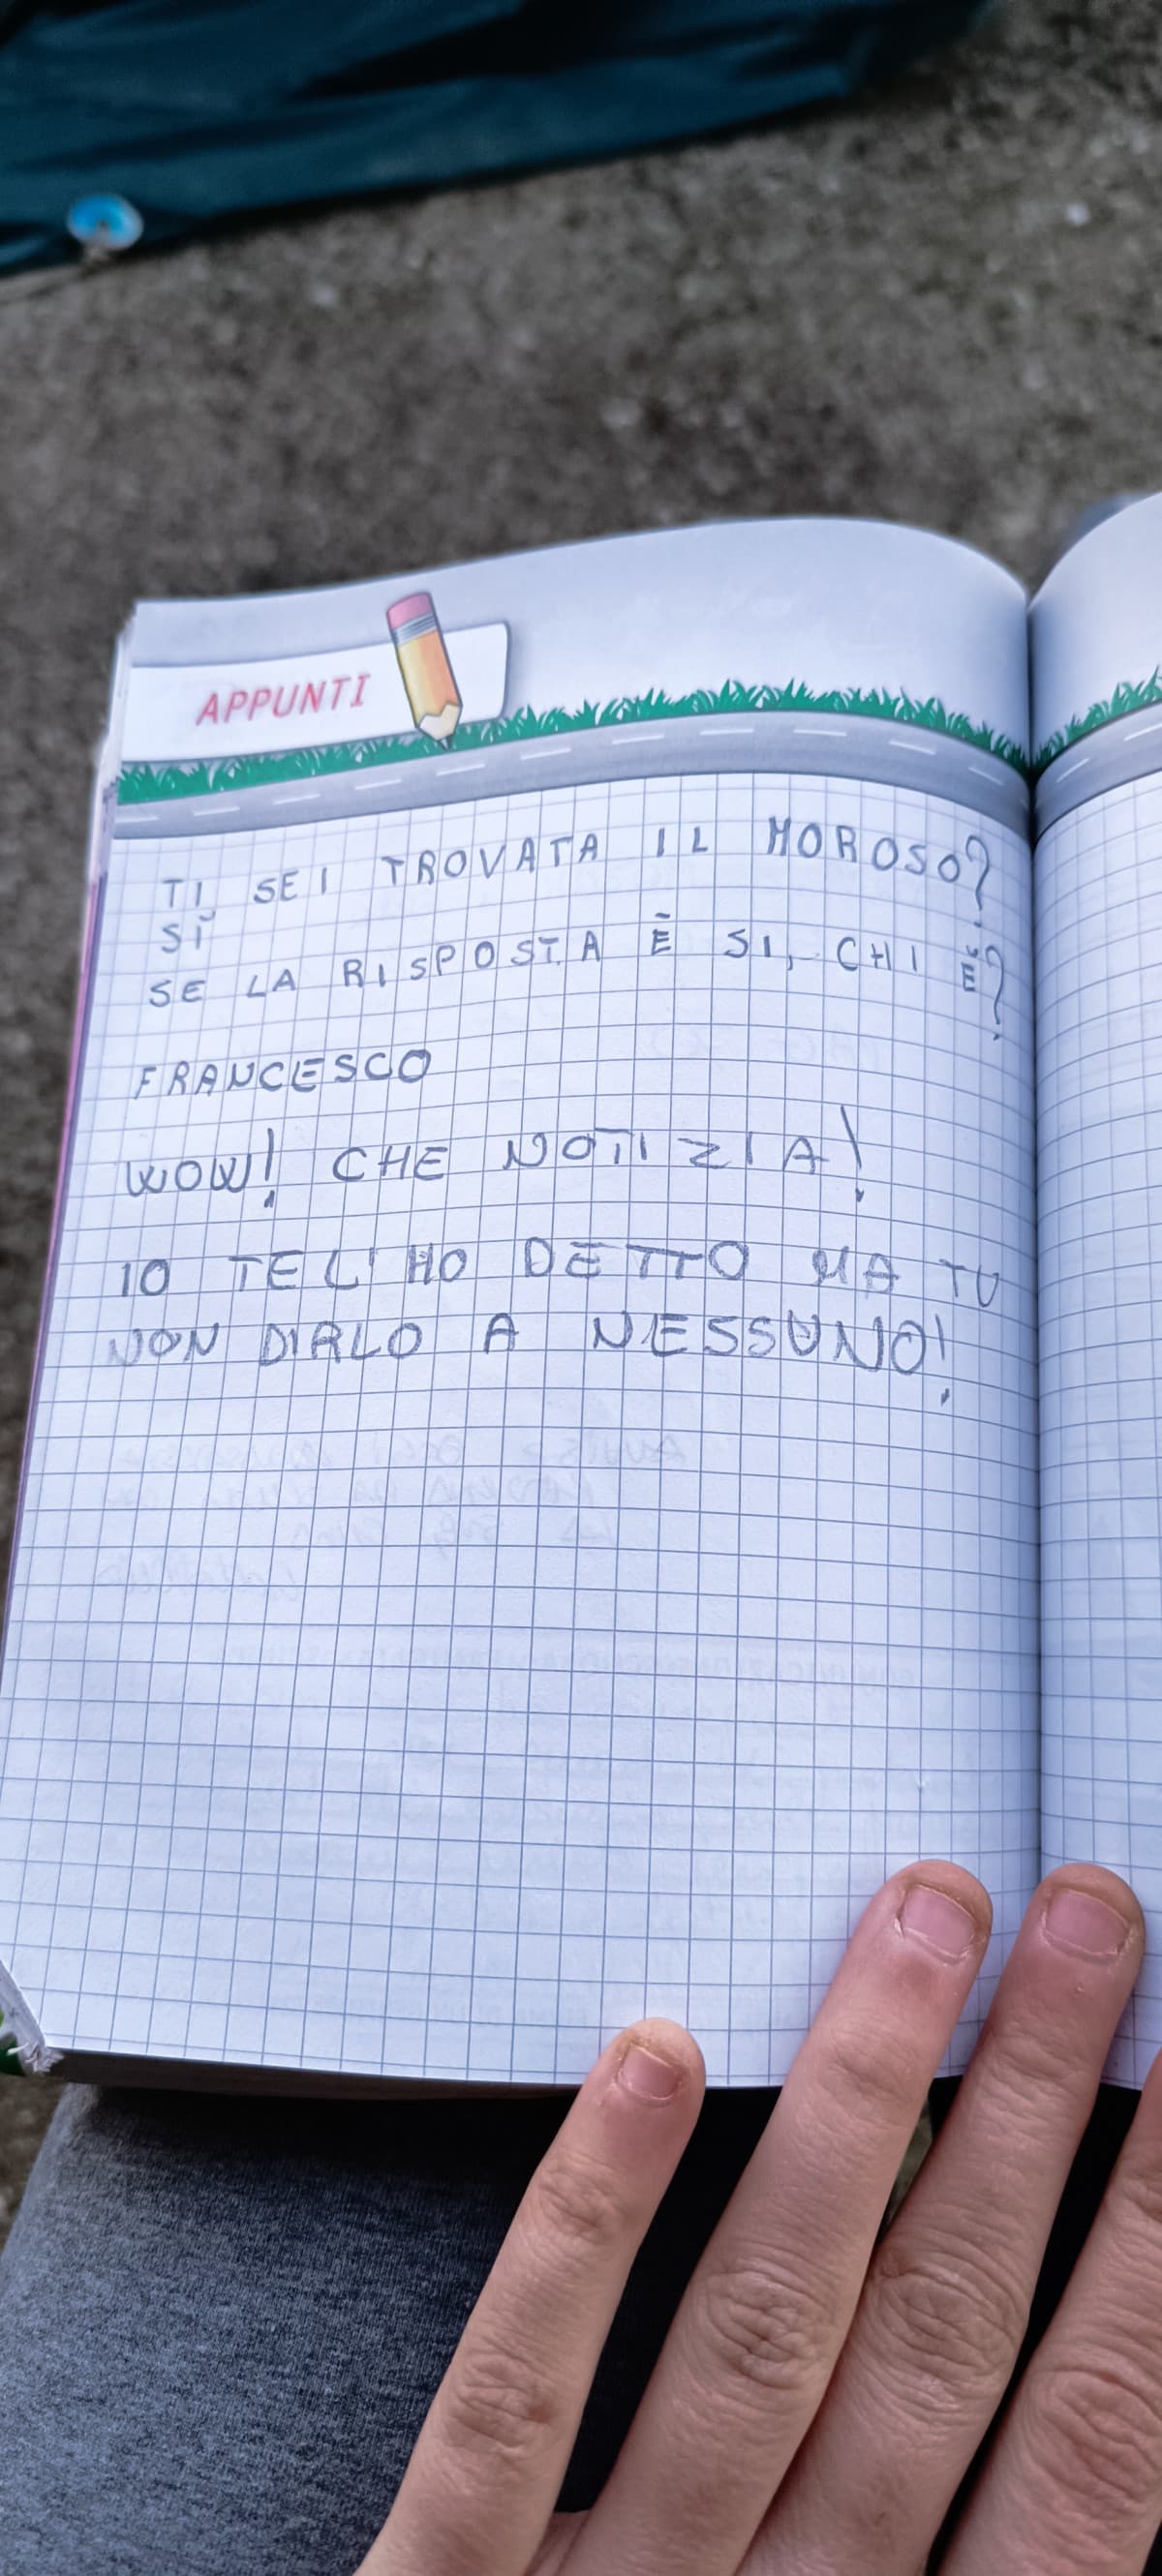 APPUNTI
TI SEI TROVATA IL MOROSO?
SÌ
SE LA RISPOSTA È SI, CHI È?
FRANCESCO
WOW! CHE NOTIZIA!
IO TEL'HO DETTO MA TU
NON DIRLO A NESSUNO!